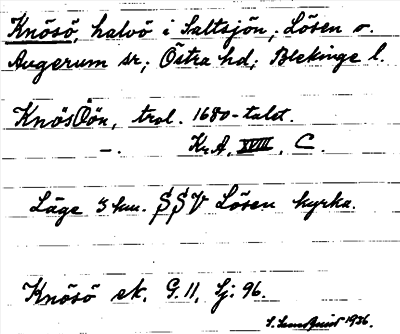 Knösö, halvö i Saltsjön; Lösen o.
Augerum sr; Östra hd; Blekinge l.
KnösÖön, trol. 1680-talet.
—. Kr. A, XVIII, C.
Läge 3 km. SSV Lösen kyrka.
Knösö ek. G. 11, Sj: 96.
1936.